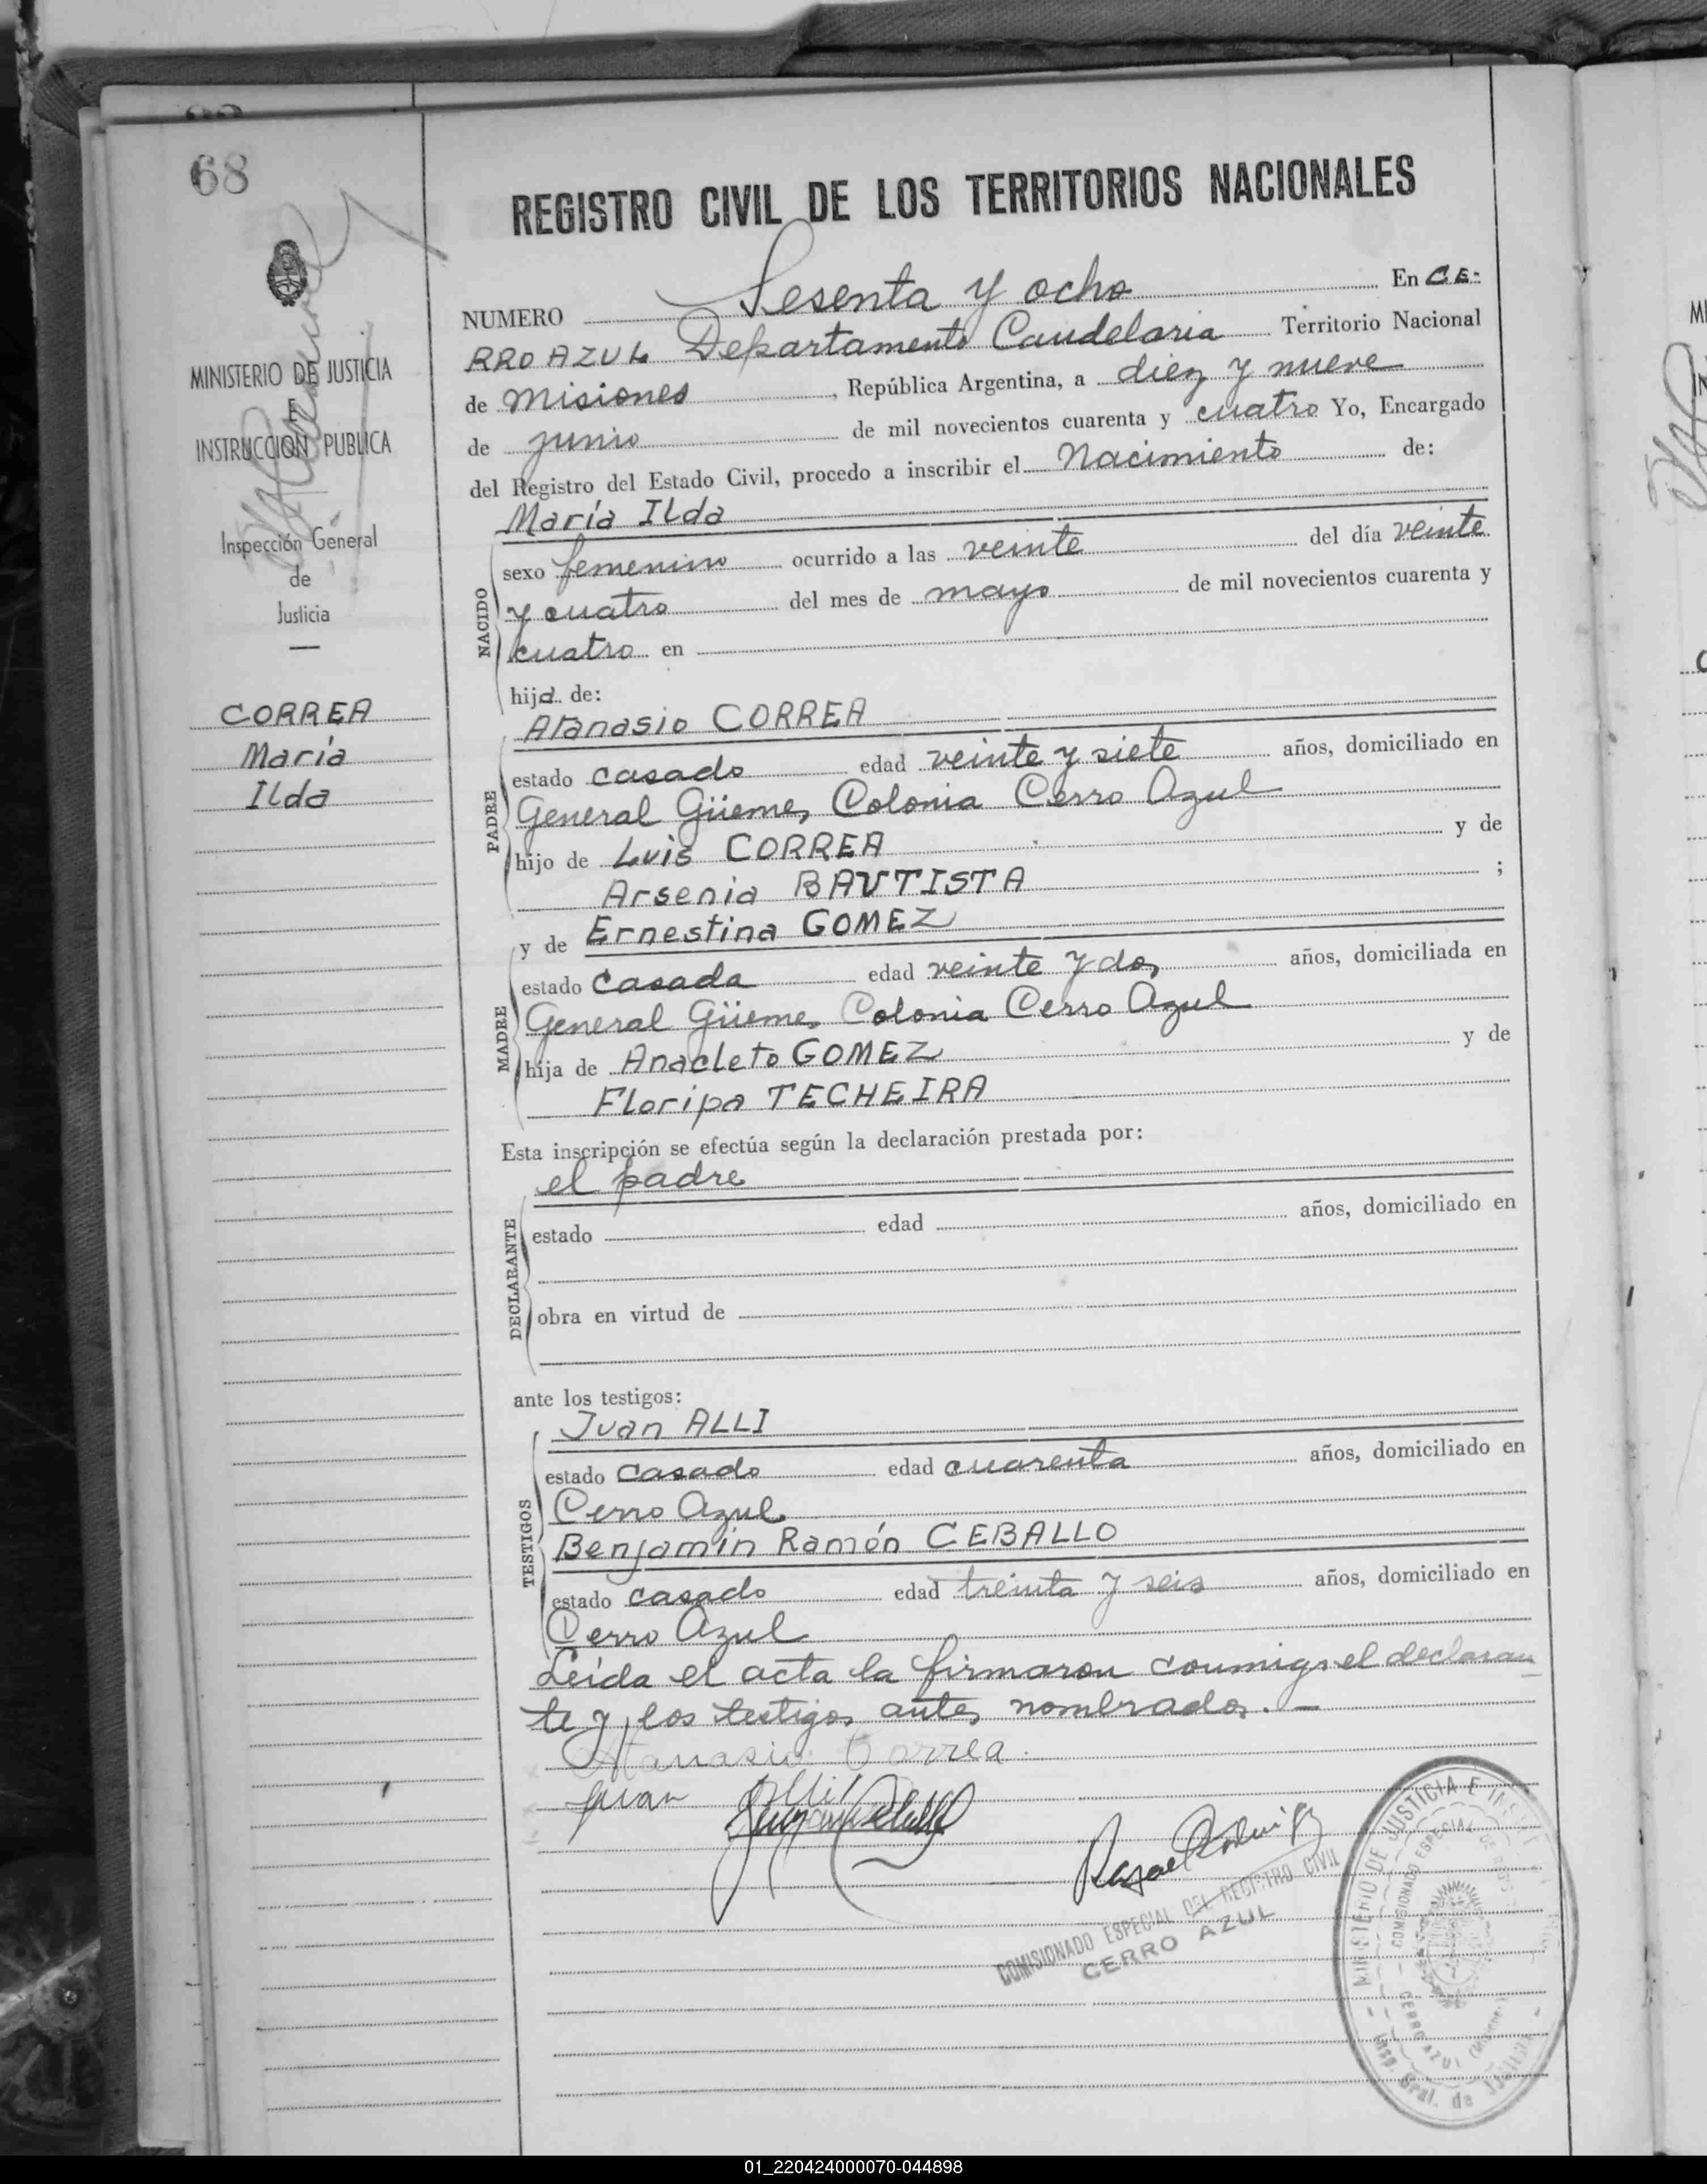 68
REGISTRO CIVIL DE LOS TERRITORIOS NACIONALES
NUMERO Sesenta y ocho En CE:
RRO AZUL Departamento Candelaria Territorio Nacional
de Misiones, República Argentina, a diez y nueve
de junio de mil novecientos cuarenta y cuatro Yo, Encargado
del Registro del Estado Civil, procedo a inscribir el Nacimiento de:
María Ilda
NACIDO
sexo femenino ocurrido a las veinte del día veinte
y cuatro del mes de mayo de mil novecientos cuarenta y
cuatro en
hija de:
Atanasio CORREA
PADRE
estado casado edad veinte y siete años, domiciliado en
General Güemes Colonia Cerro Azul
hijo de Luis CORREA y de
Arsenia BAUTISTA ;
y de Ernestina GOMEZ
MADRE
estado casada edad veinte y dos años, domiciliada en
General Güemes Colonia Cerro Azul
hija de Anacleto GOMEZ y de
Floripa TECHEIRA
Esta inscripción se efectúa según la declaración prestada por:
el padre
DECLARANTE
estado edad años, domiciliado en
obra en virtud de
ante los testigos:
Juan ALLI
TESTIGOS
estado casado edad cuarenta años, domiciliado en
Cerro Azul
Benjamín Ramón CEBALLO
estado casado edad treinta y seis años, domiciliado en
Cerro Azul
Leída el acta la firmaron conmigo el declaran
te y los testigos antes nombrados. —
Atanasio Correa
Juan Alli
COMISIONADO ESPECIAL DEL REGISTRO CIVIL
CERRO AZUL
MINISTERIO DE JUSTICIA E
COMISIONADO ESPECIAL DE
CERRO AZUL (Misiones)
Insp. Gral. de Justicia
MINISTERIO DE JUSTICIA
E
INSTRUCCION PUBLICA
Inspección General
de
Justicia
CORREA
María
Ilda
01_220424000070-044898